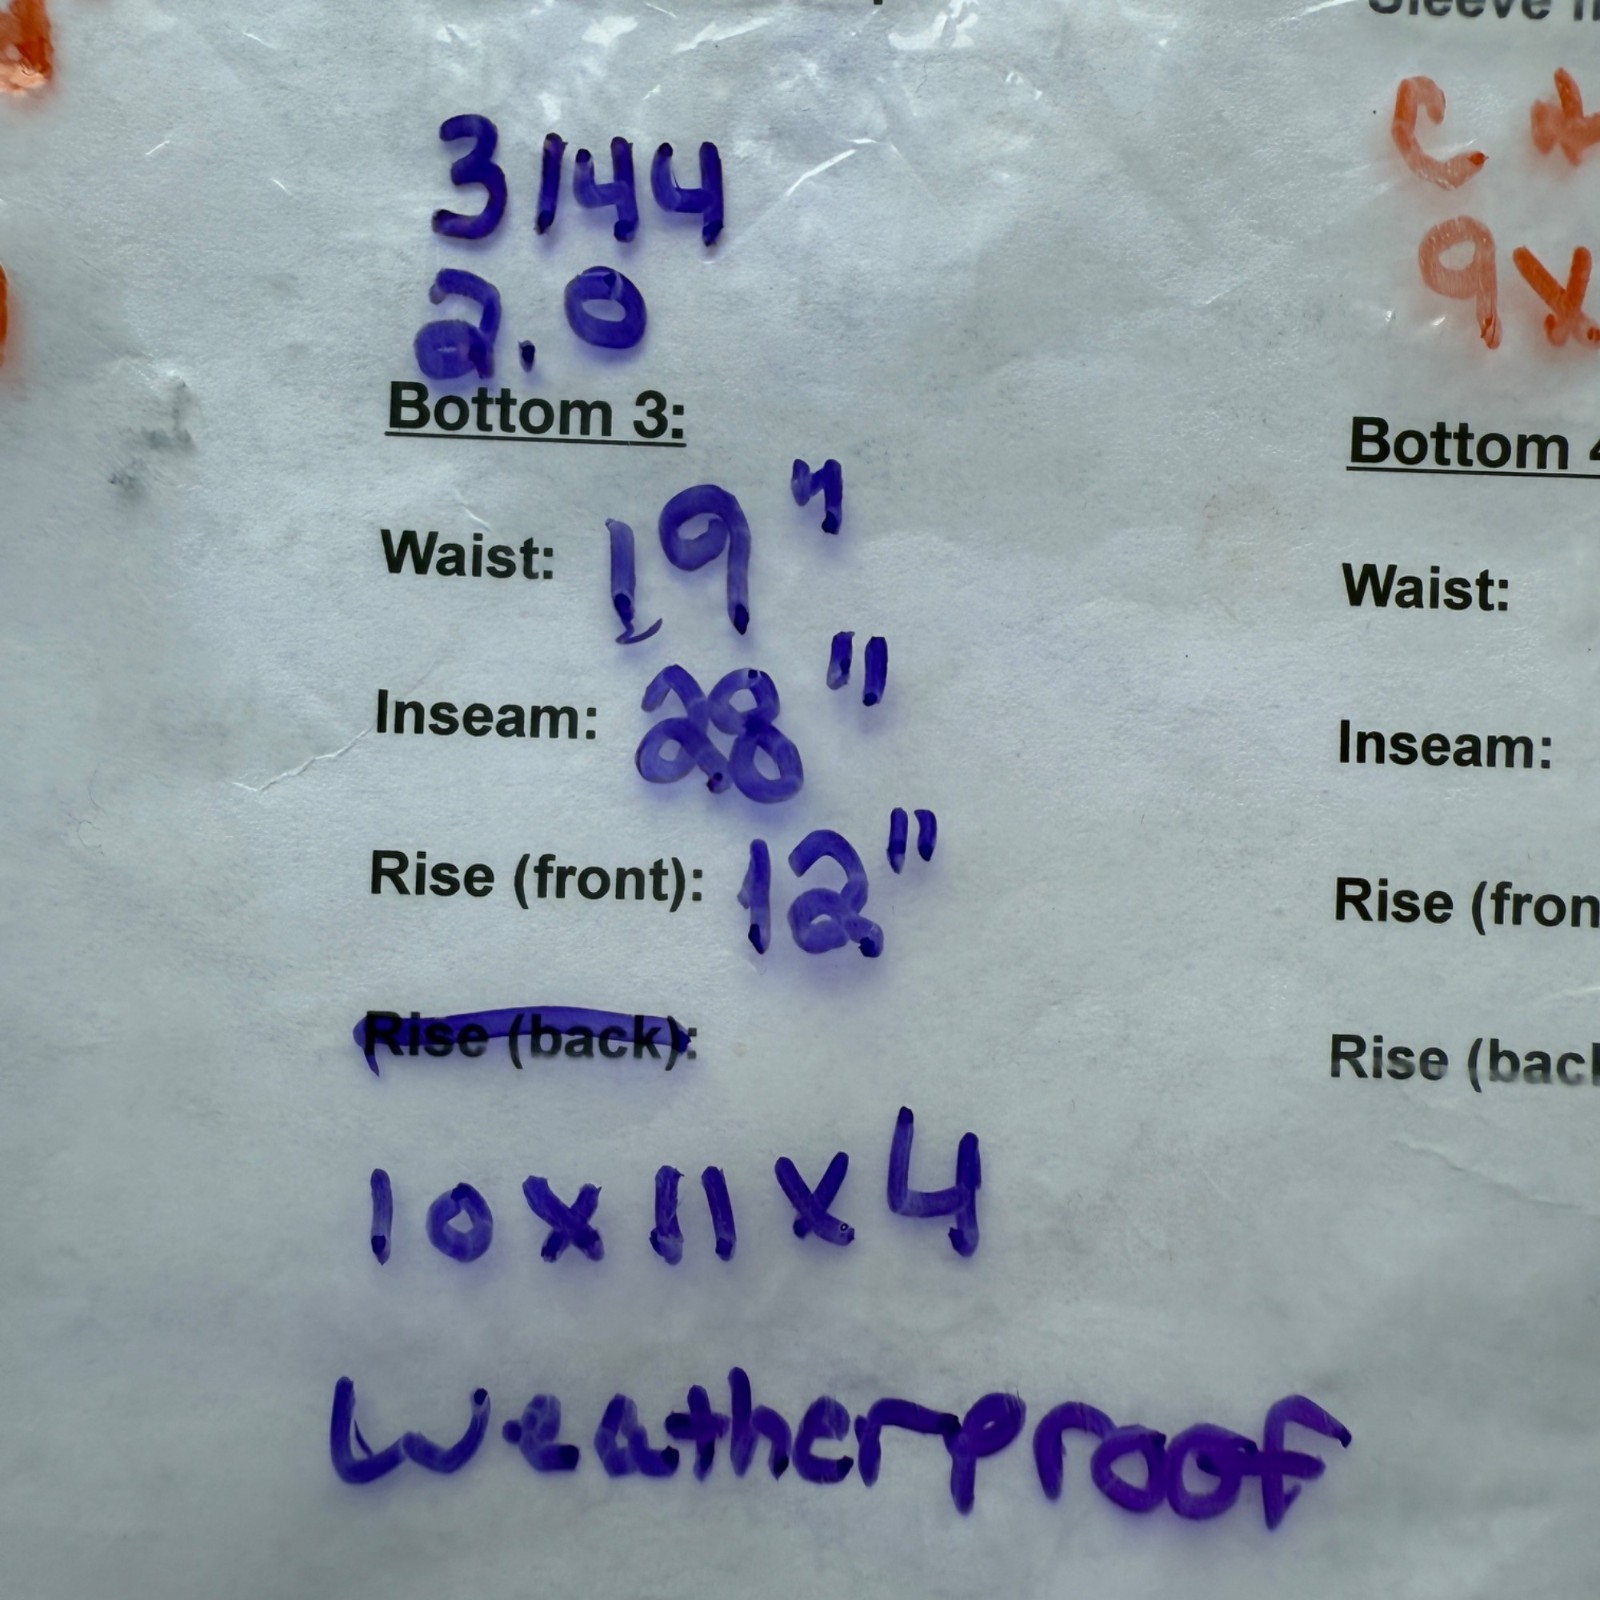 3144
2.0
Bottom 3:
Waist: 19"
Inseam: 28"
Rise (front): 12"
Rise (back):
10 x 11 x 4
Weatherproof
Sleeve
C
9x
Bottom 4
Waist:
Inseam:
Rise (fron
Rise (back